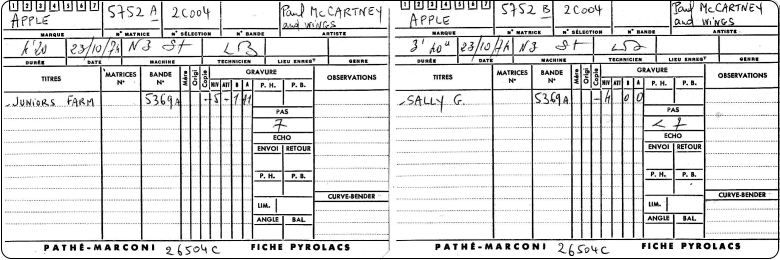 1 2 3 4 5 6 7
APPLE 5752 A 2C004 Paul McCARTNEY
and WINGS
MARQUE N° MATRICE N° SÉLECTION N° BANDE ARTISTE
4'20 23/10/74 N3 St
DURÉE DATE MACHINE TECHNICIEN LIEU ENREGT GENRE
TITRES MATRICES N° BANDE N° Mère Origi Copie GRAVURE OBSERVATIONS
NIV ATT B A P. H. P. B.
JUNIORS FARM 5369A -5 -1 +1
PAS
7
ECHO
ENVOI RETOUR
P. H. P. B.
CURVE-BENDER
LIM.
ANGLE BAL.
PATHÉ-MARCONI 26504C FICHE PYROLACS
1 2 3 4 5 6 7
APPLE 5752 B 2C004 Paul McCARTNEY
and WINGS
MARQUE N° MATRICE N° SÉLECTION N° BANDE ARTISTE
3'40" 23/10/74 N3 St
DURÉE DATE MACHINE TECHNICIEN LIEU ENREGT GENRE
TITRES MATRICES N° BANDE N° Mère Origi Copie GRAVURE OBSERVATIONS
NIV ATT B A P. H. P. B.
SALLY G. 5369A -4 0 0
PAS
< 7
ECHO
ENVOI RETOUR
P. H. P. B.
CURVE-BENDER
LIM.
ANGLE BAL.
PATHÉ-MARCONI 26504C FICHE PYROLACS